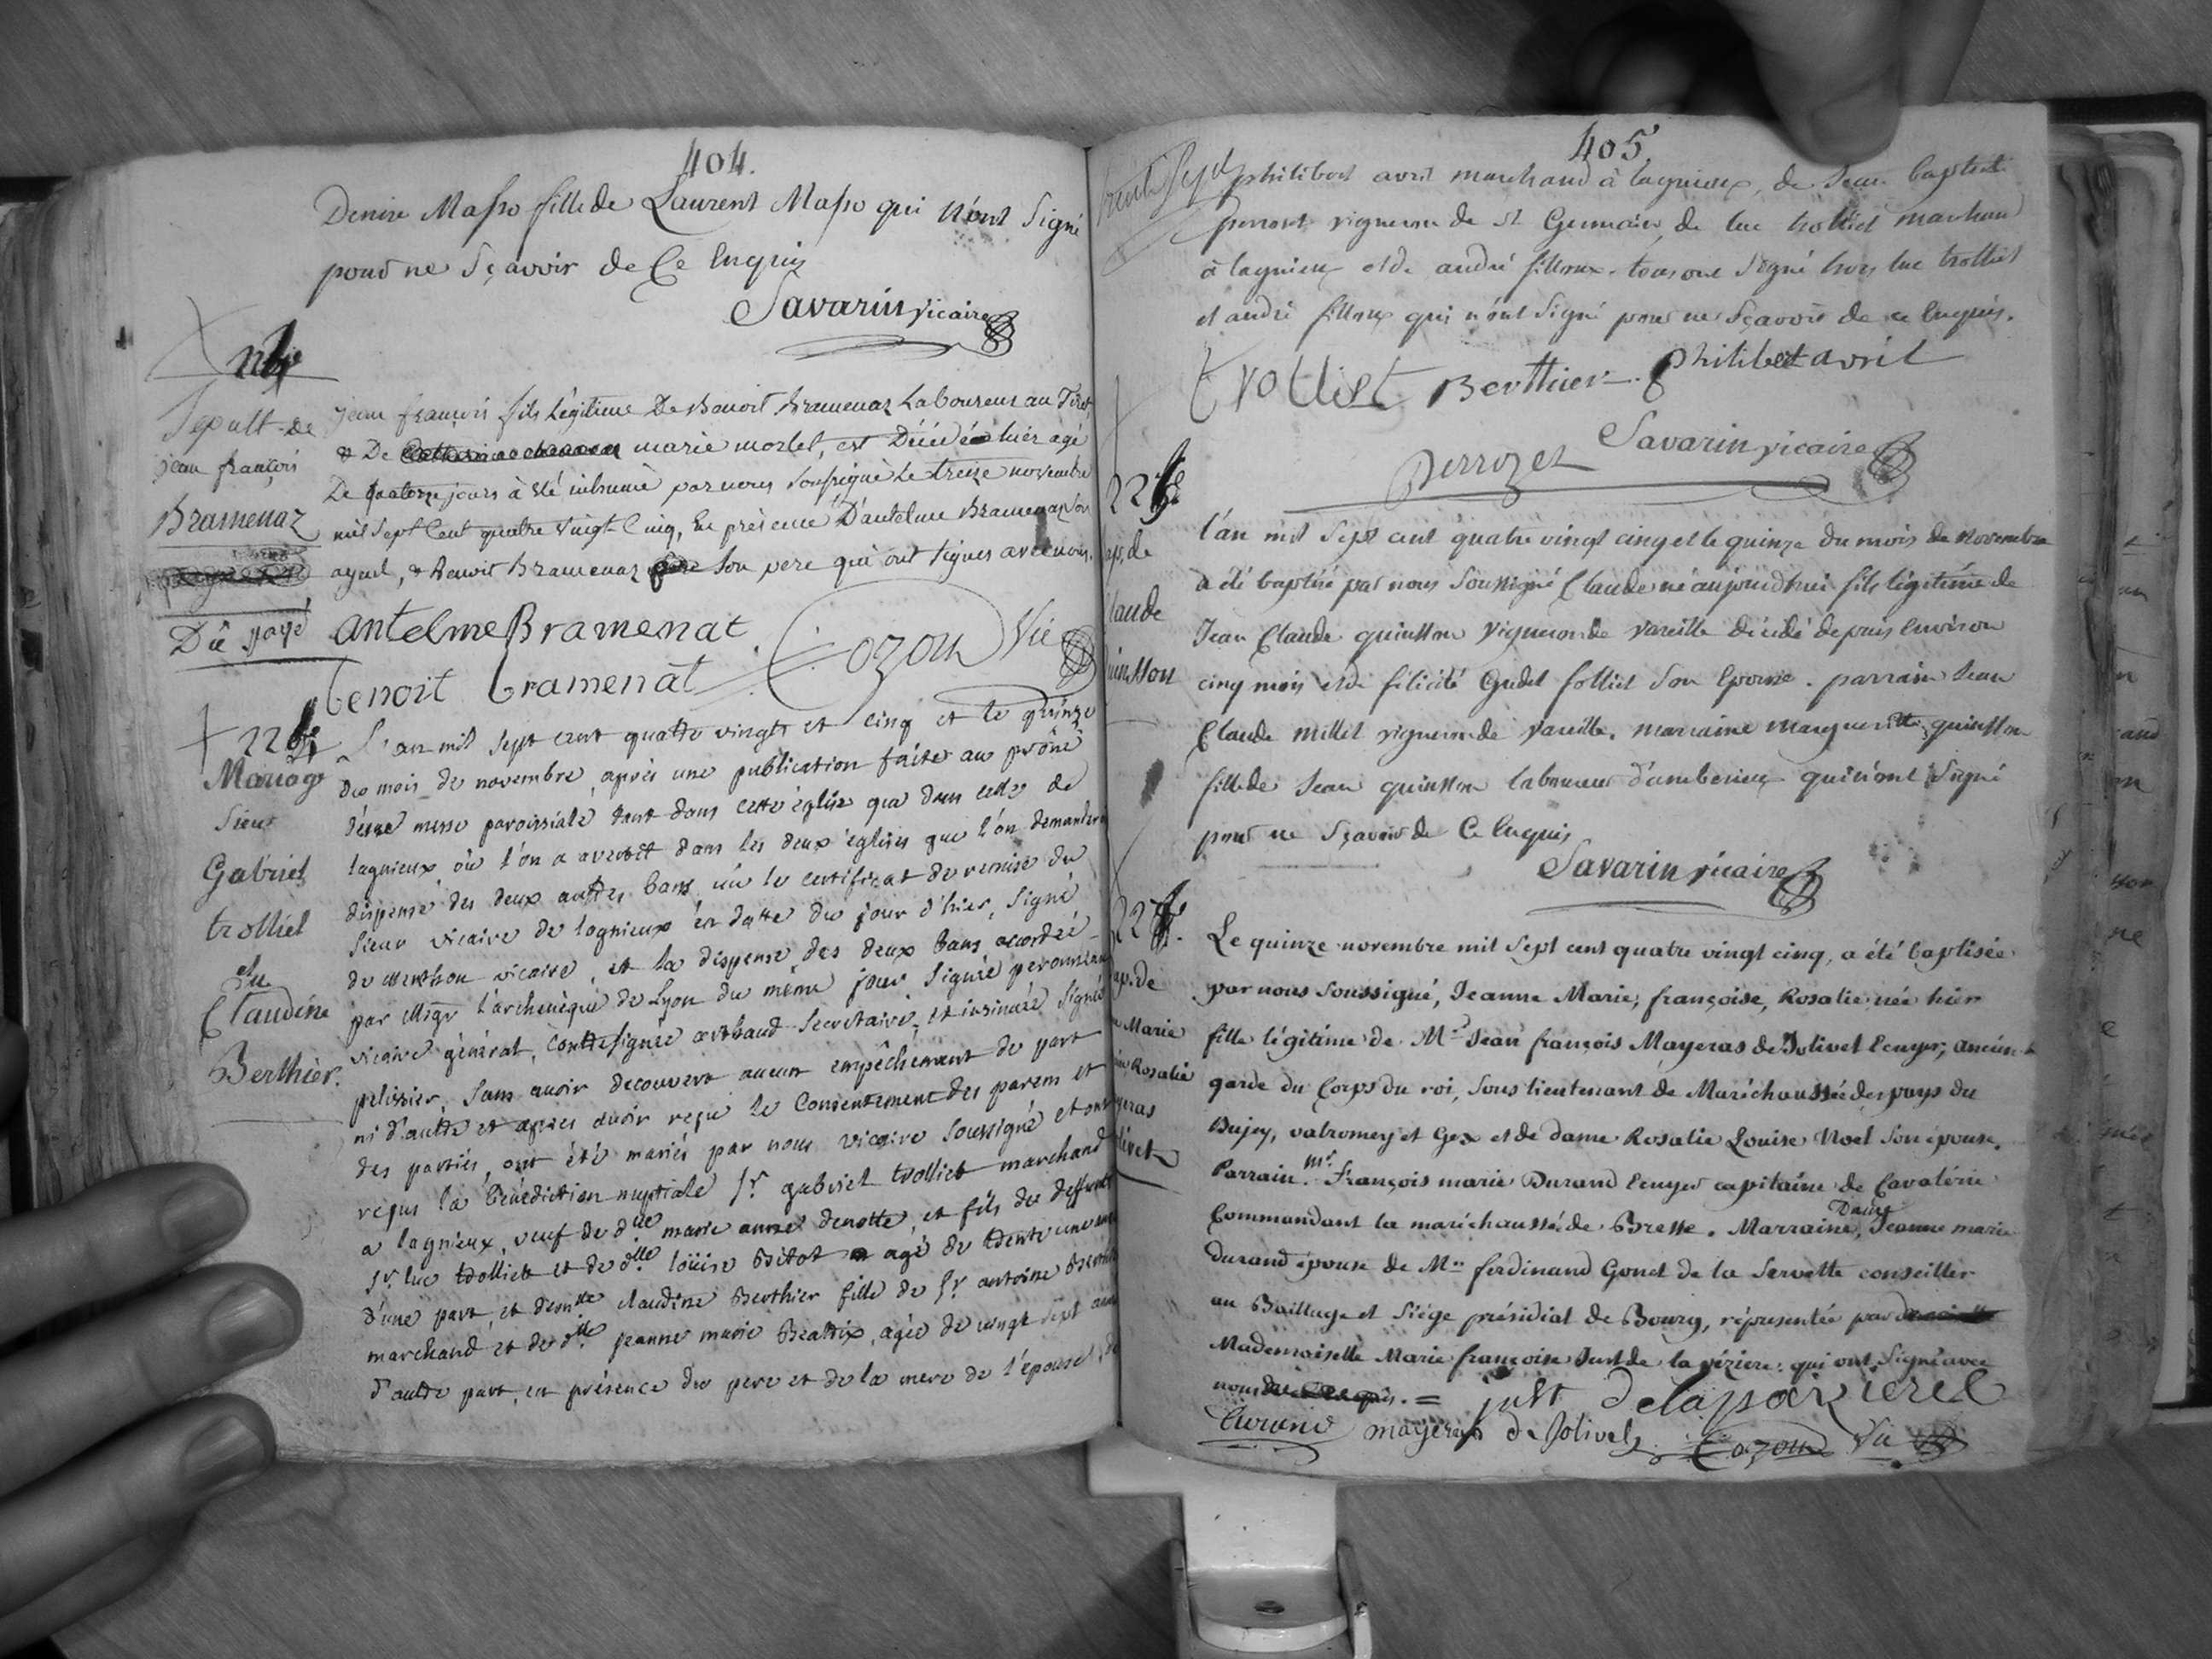 404.
Denise Masso fille de Laurent Masso qui n'ont signé
pour ne sçavoir de ce enquis
Savarin vicaire
Sepult. de
jean françois
Bramenaz
Dû payé
jean françois fils légitime De Benoit Bramenaz Laboureur au
& De marie mortel, est Décédé hier agé
De quatorze jours à été inhumé par nous soussigné le treize novembre
mil sept Cent quatre vingt Cinq, En présence D'antelme Bramenaz son
ayeul, & Benoit Bramenaz son pere qui ont signés avec nous.
antelme Bramenat
Cozon Vic
benoit bramenat
Mariage
Sieur
Gabriel
trolliet
Claudine
Berthier.
L'an mil sept cent quatre vingts et cinq et le quinze
du mois de novembre, après une publication faite au prône
de messe paroissiale tant dans cette église que dans celle de
lagnieux, où l'on a averti dans les deux églises que l'on demanderoit
dispense des deux autres bans, vû le certificat de remise du
sieur vicaire de lagnieux en datte du jour d'hier, signé
de menthon vicaire, et la dispense des deux bans accordée
par Msgr l'archevêque de Lyon du même jour signée
vicaire général, contresignée arthaud secretaire, et insinuée signée
pelissier, sans avoir decouvert aucun empêchement de part
ni d'autre et après avoir reçu le consentement des parens et
des parties, ont été mariés par nous vicaire soussigné et ont
reçus la bénédiction nuptiale Sr. gabriel trolliet marchand
a lagnieux, veuf de dlle marie anne denotte, et fils de deffunt
Sr. luc trolliet et de dlle loüise Bitot agé de trente un ans
d'une part, et demlle claudine Berthier fille de Sr antoine Berthier
marchand et de dlle jeanne marie Béatrix, agée de vingt sept ans
d'autre part, en présence du pere et de la mere de l'épouse, de
405.
philibert avril marchand à lagnieux, de Jean baptiste
perrozet vigneron de St Germain, de luc trolliet marchand
à lagnieux et de andré filloux. tous ont signé hors luc trolliet
et andré filloux qui n'ont signé pour ne sçavoir de ce enquis.
Trolliet Berthier philibert avril
Savarin vicaire
Perrozet
bap. de
Claude
quinsson
l'an mil sept cent quatre vingt cinq et le quinze du mois de novembre
a été baptisé par nous soussigné Claude né aujourdhui fils légitime de
Jean Claude quinsson vigneron de vareille décédé depuis environ
cinq mois et de félicité Gudet folliet son Epouse. parrain Jean
Claude millet vigneron de vareille. marraine marguerite quinsson
fille de Jean quinsson laboureur d'amberieux qui n'ont signé
pour ne sçavoir de Ce enquis
Savarin vicaire
bap. de
Marie
Rosalie
Le quinze novembre mil sept cent quatre vingt cinq, a été baptisée
par nous soussigné, Jeanne Marie, françoise, Rosalie née hier
fille légitime de Mre Jean françois Mayeras de Jolivet Ecuyer, ancien
garde du Corps du roi, sous lieutenant de Maréchaussée des pays du
Bujey, valromey et Gex et de dame Rosalie Louise Noel son épouse.
Parrain Mr. François marie Durand Ecuyer capitaine de Cavalerie
Commandant la maréchaussée de Bresse. Marraine, Dame Jeanne marie
durand épouse de Mre ferdinand Gonet de la Servette conseiller
au Baillage et Siége présidial de Bourg, réprésentée par
Mademoiselle Marie françoise Just de la périere: qui ont signé avec
nous = just Delaparierel
Durand mayeras de Jolivet Cozon Vic